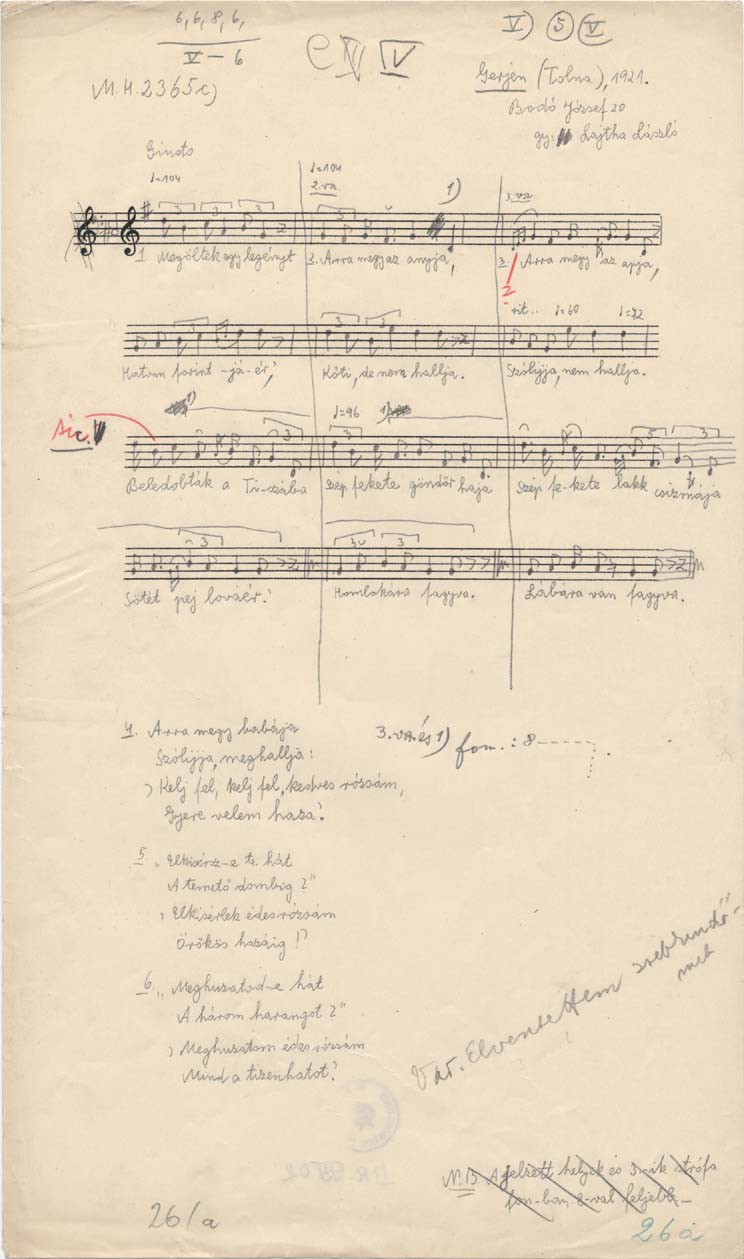 6, 6, 8, 6,
V – 6
M. H. 2365 c)
V) 5 V
Gerjen (Tolna), 1921.
Bodó József 20
gy: Lajtha László
Giusto
♩=104
♩=104
2. vsz
1)
3. vsz
1. Megöltek egy legényt
2. Arra megy az anyja,
3. Arra megy az apja,
?
rit.. ♩=60 ♩=72
Hatvan forint-já-ér,
Költi, de nem hallja.
Szólijja, nem hallja.
sic!
1)
♩=96
1)
Beledobták a Ti-szába
Szép fekete göndör haja
Szép fe-kete lakk csizmája
Sötét pej lováér.
Homlokára fagyva.
Lábára van fagyva.
4. Arra megy babája
Szólijja, meghallja:
Kelj fel, kelj fel, kedves rózsám,
Gyere velem haza.
3. va. és 1) fon. : 8 - - - - .
5. „Elkisérsz-e te hát
A temető dombig?"
„Elkisérlek édes rózsám
Örökös hazáig!"
6. „Meghuzatod-e hát
A három harangot?"
„Meghuzatom édes rózsám
Mind a tizenhatot.
Var. Elvesztettem zsebkendő-
met
DR 9502
N. B. A jelzett helyek és 3-ik strófa
fon-ban 8-val feljebb.
26/a
26a